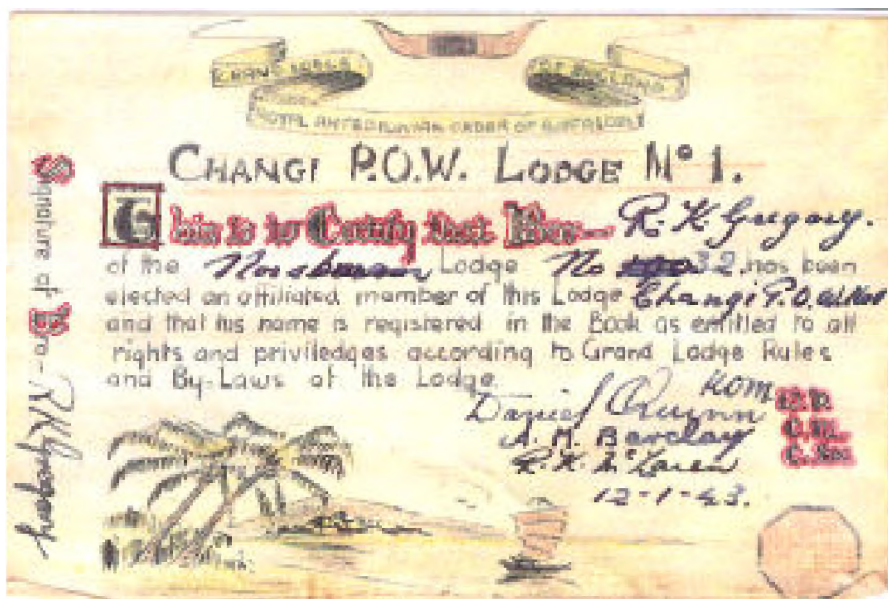 GRAND LODGE OF ENGLAND
ROYAL ANTEDILUVIAN ORDER OF BUFFALOES
CHANGI P.O.W. LODGE No 1.
This is to Certify that Bro— R. K. Gregory.
of the Lodge No 32 has been
elected an affiliated member of this Lodge Changi P.O.W No1
and that his name is registered in the Book as entitled to all
rights and priviledges according to Grand Lodge Rules
and By-Laws of the Lodge.
Daniel Quinn KOM
A. M. Barclay C.M.
R. K. McLaren C.Sec
12-1-43.
Signature of Bro- RKGregory